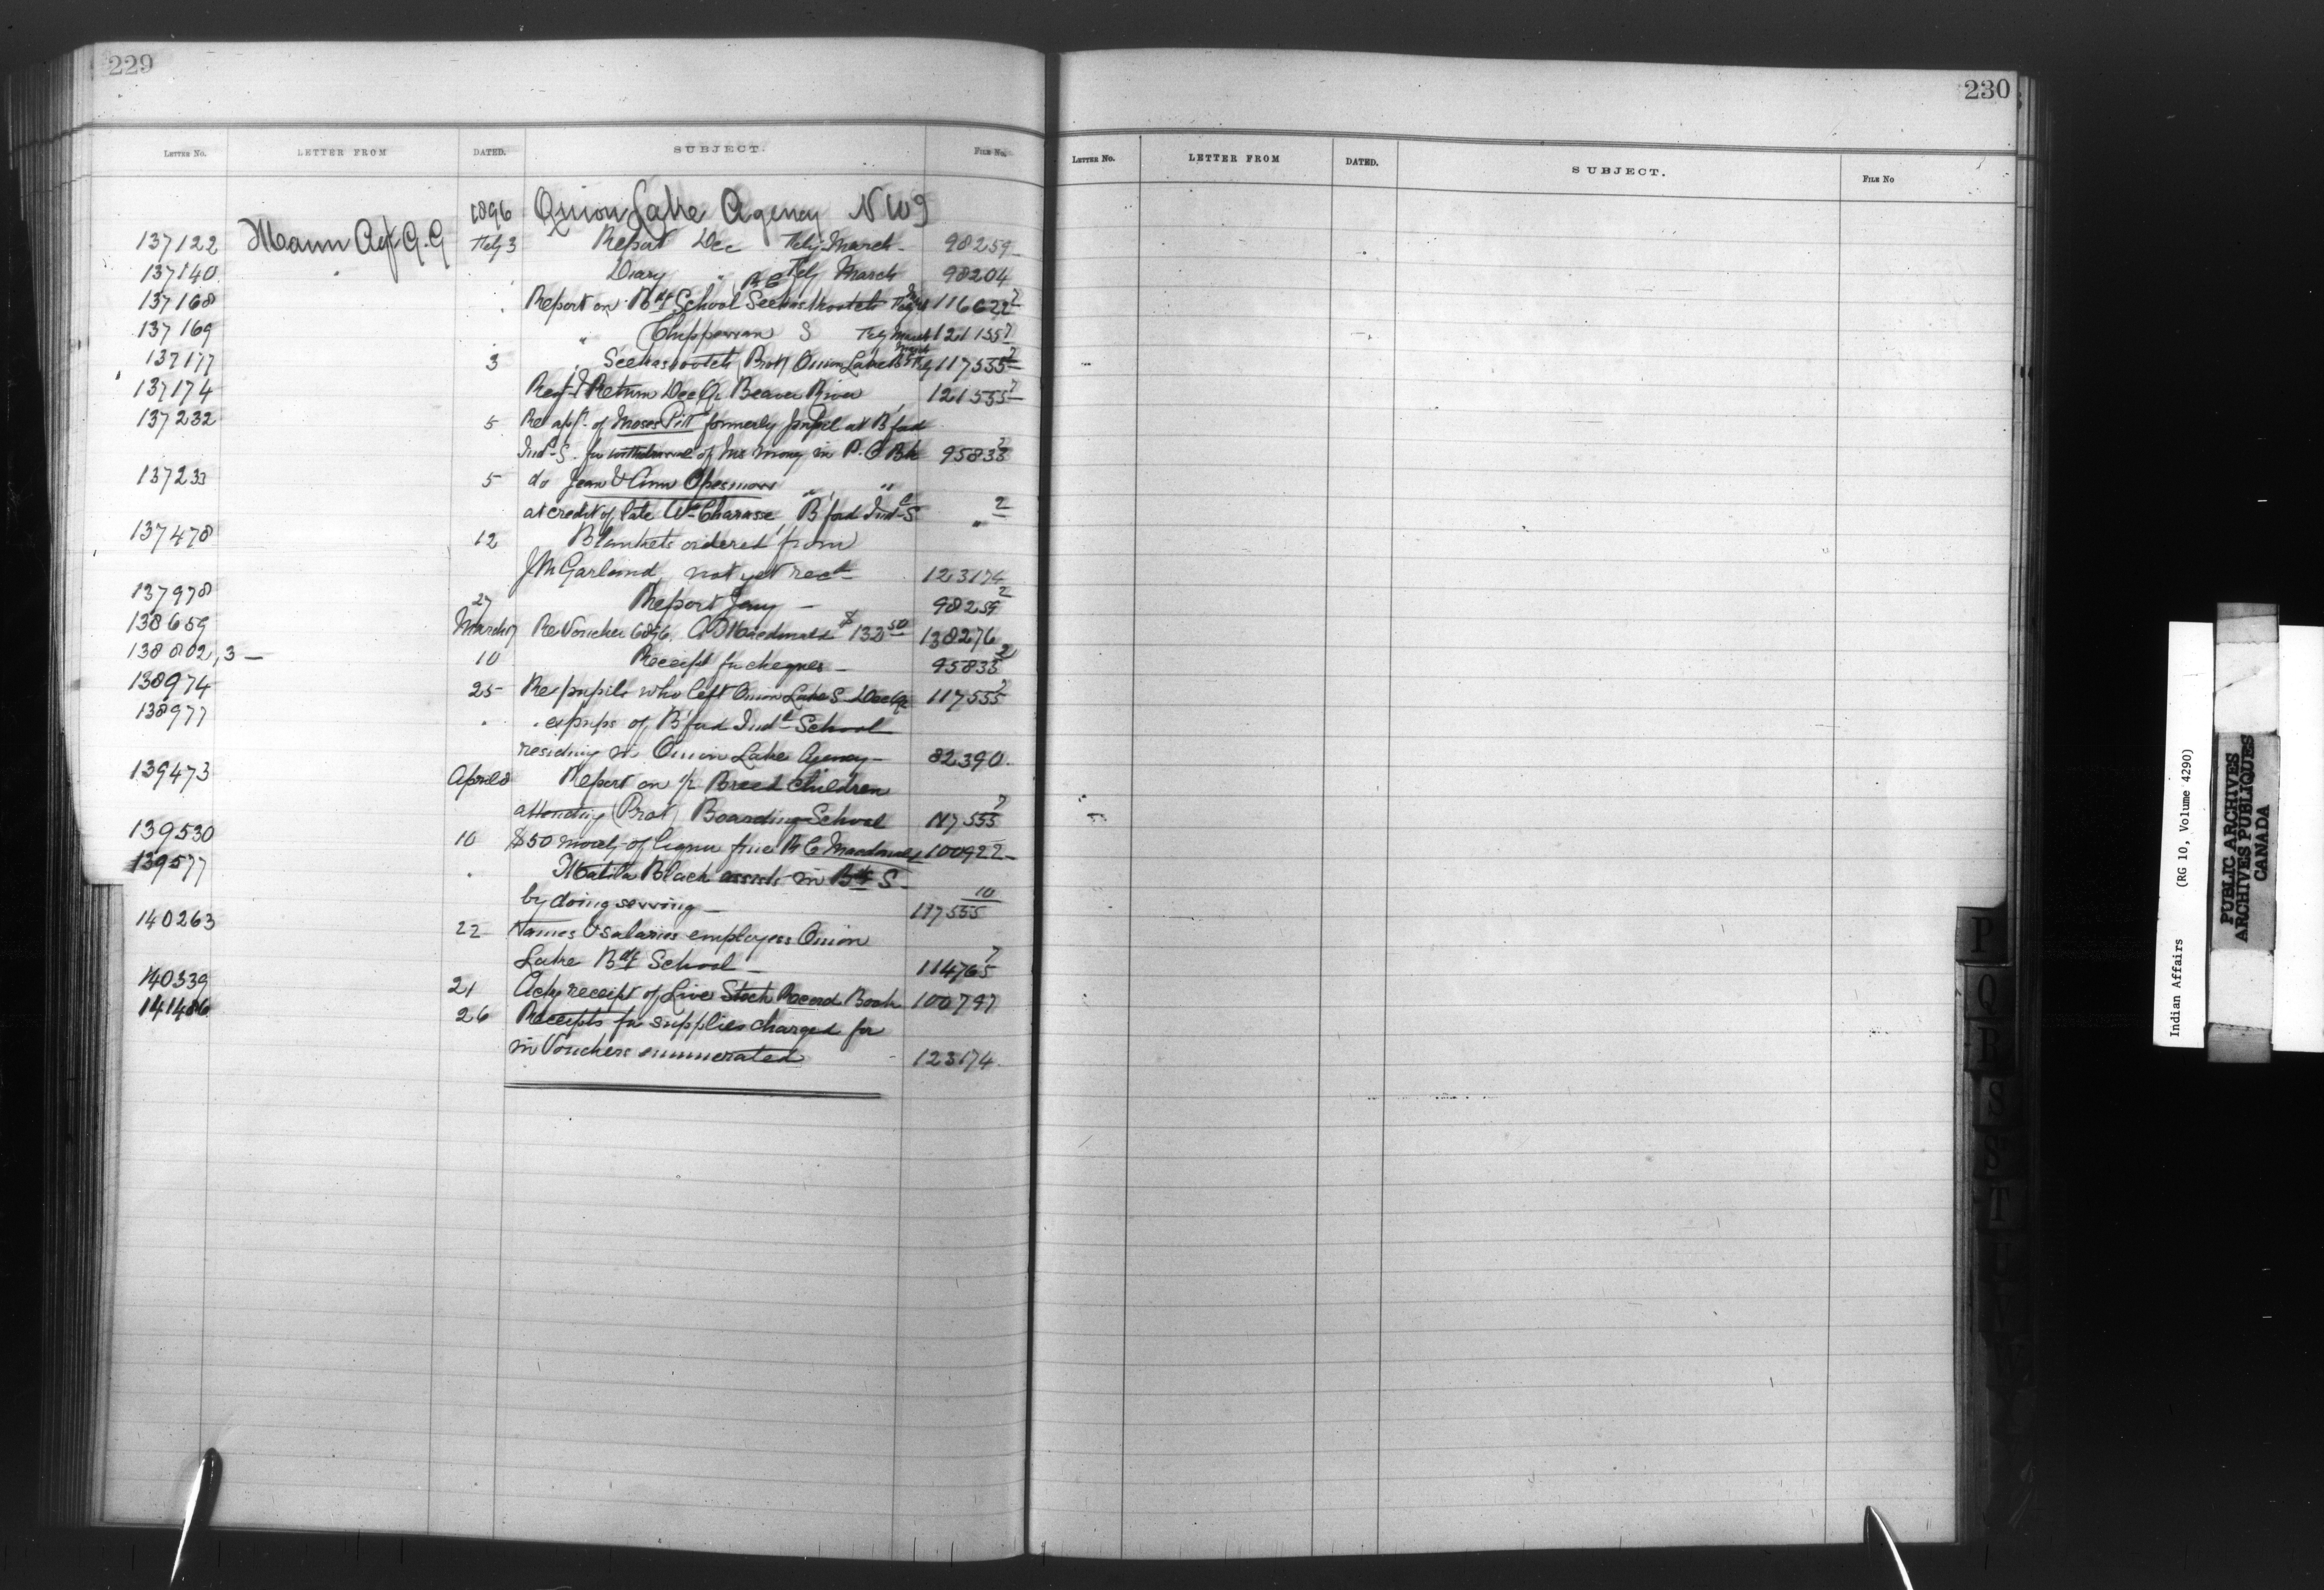 229
LETTER NO. LETTER FROM DATED. SUBJECT. FILE No.
1896 Onion Lake Agency NWT
137122 Mann Agt G.G Feby 3 Report Dec Feby March 98259
137140 " " Diary " Feby March 98204
137168 " Report on Bdg School Seekaskootch RC Feby 116622 7
137169 " Chippewan S Feby March 121155 7
137177 3 " Seekaskootch (Prot) Onion Lake Bdg S Feby March 117555 7
137174 Reg & Return Dec Qr Beaver River 121555 7
137232 5 Re appn. of Moses Pitt formerly pupil at B'ford
Indl S. for withdrawal of his money in P.O Bk 95833 2
137233 5 do Jean & Ann " "
at credit of late Wm Charasse, B'ford Indl S. " 2
137478 12 Blankets ordered from
J M Garland, not yet recd 123174
137978 27 Report Jany — 98259 2
138659 March 7 Re Voucher 6896 A D Macdonald $132 50 138276
138802,3 — 10 Receipt for cheques — 95833 2
138974 25 Re pupils who left Onion Lake S Dec Qr 117555 7
138977 " " ex pups of B'ford Indl School
residing in Onion Lake Agency — 82390.
139473 April 8 Report on ½ Breed children
attending (Prot) Boarding School 117555 7
139530 10 $50 moiety of liquor fine A C Macdonald 100922 —
139577 " Matilda Black assists in Bdg S —
by doing sewing — 117555 10
140263 22 Names & salaries employees Onion
Lake Bdg School — 114765 7
140339 21 Ackg receipt of Live Stock Record Book 100797
141486 26 Receipts for supplies charged for
in Vouchers enumerated 123174.
230
LETTER NO. LETTER FROM DATED. SUBJECT. FILE No
P
Q
R
S
T
Indian Affairs (RG 10, Volume 4290)
PUBLIC ARCHIVES
ARCHIVES PUBLIQUES
CANADA